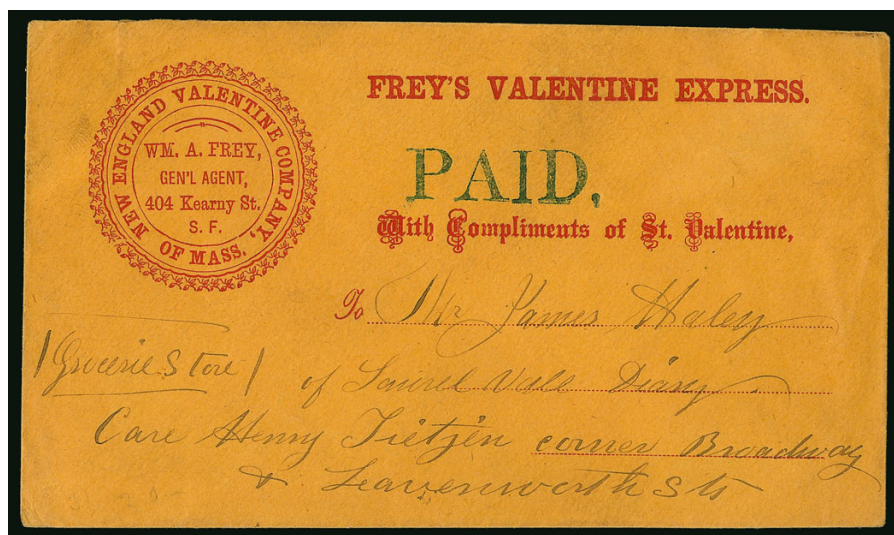 NEW ENGLAND VALENTINE COMPANY,
OF MASS.
WM. A. FREY,
GEN'L AGENT,
404 Kearny St.
S. F.
FREY'S VALENTINE EXPRESS.
PAID,
With Compliments of St. Valentine,
To Mr James Haley
/Grocerie Store/
of Laurel Vale Diary
Care Henry Tietjen corner Broadway
& Leavenworth Sts